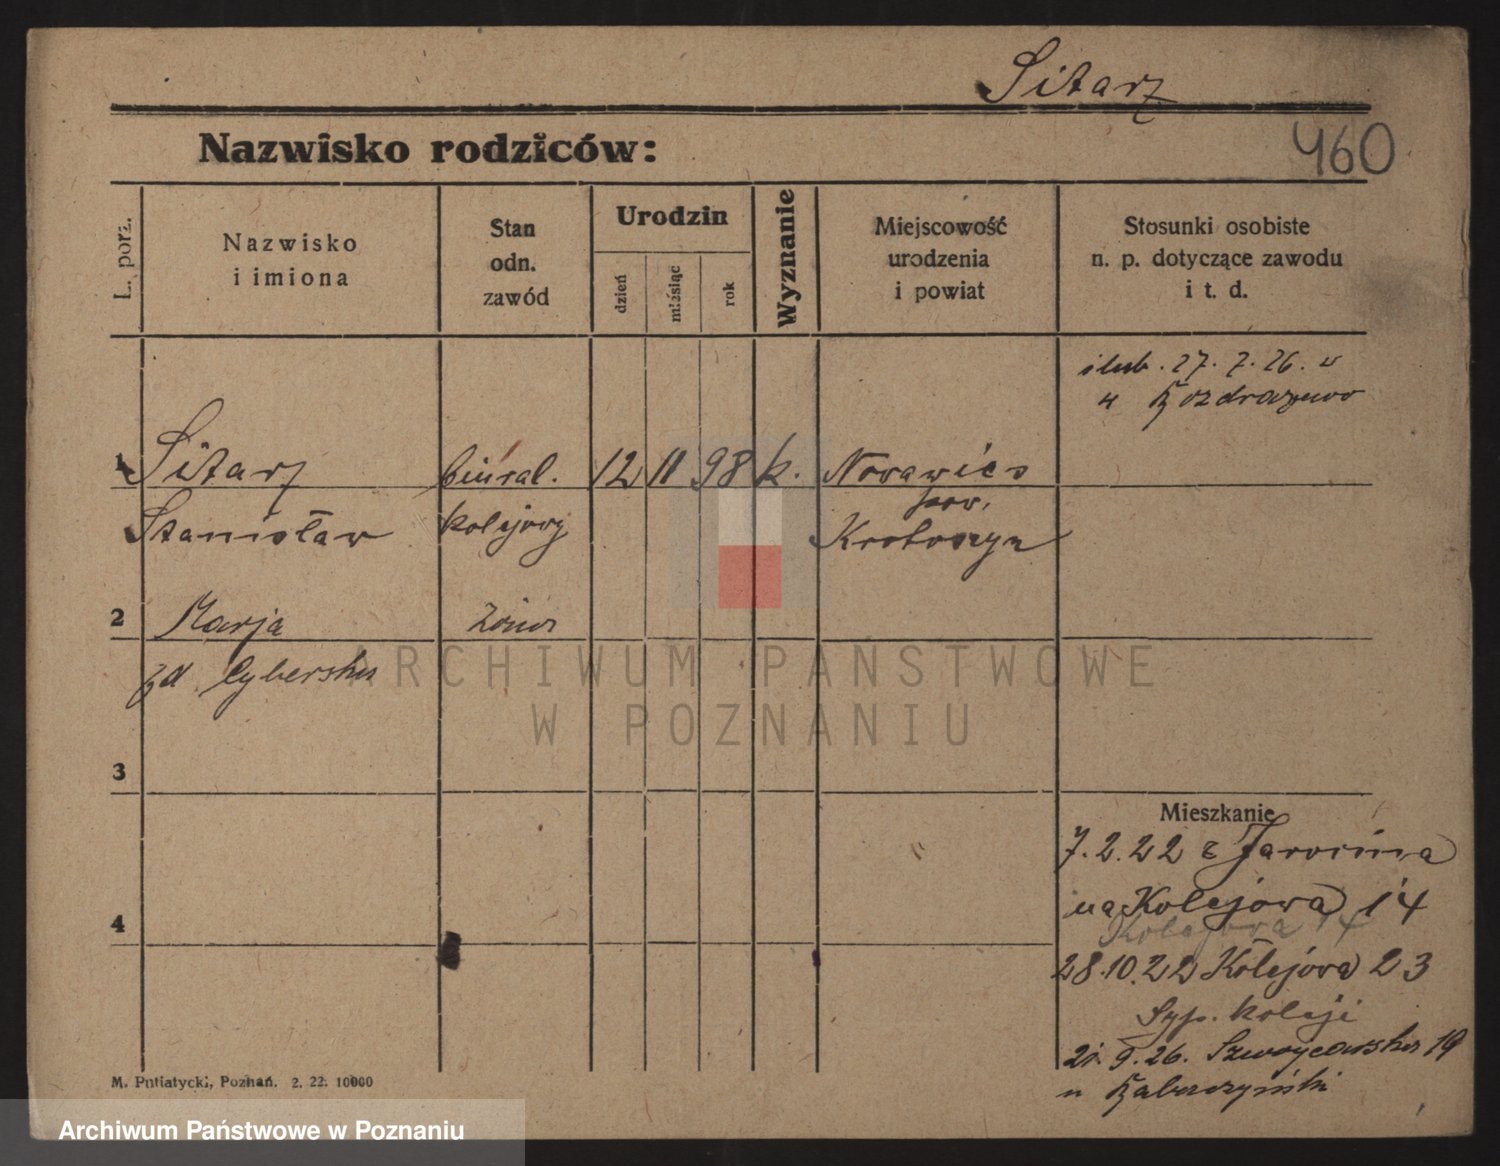 Sitarz
Nazwisko rodziców:
460
L. porz.
Nazwisko
i imiona
Stan
odn.
zawód
Urodzin
dzień
miesiąc
rok
Wyznanie
Miejscowość
urodzenia
i powiat
Stosunki osobiste
n. p. dotyczące zawodu
i t. d.
ślub. 27. 7. 26. w
Rozdrazewo
1 Sitarz biural. 12 11 98 k. Nowawies
pow.
Stanisław kolejowy Krotoszyn
2 Marja żona
zd Cyberska
ARCHIWUM PAŃSTWOWE
W POZNANIU
3
Mieszkanie
7.2.22 z Jarocina
na Kolejowa 14
4
Kolejowa 14
28.10.22 Kolejowa 23
Syp. koleji
21.9.26. Szwajcarska 19
M. Putiatycki, Poznań. 2. 22. 10000
Archiwum Państwowe w Poznaniu